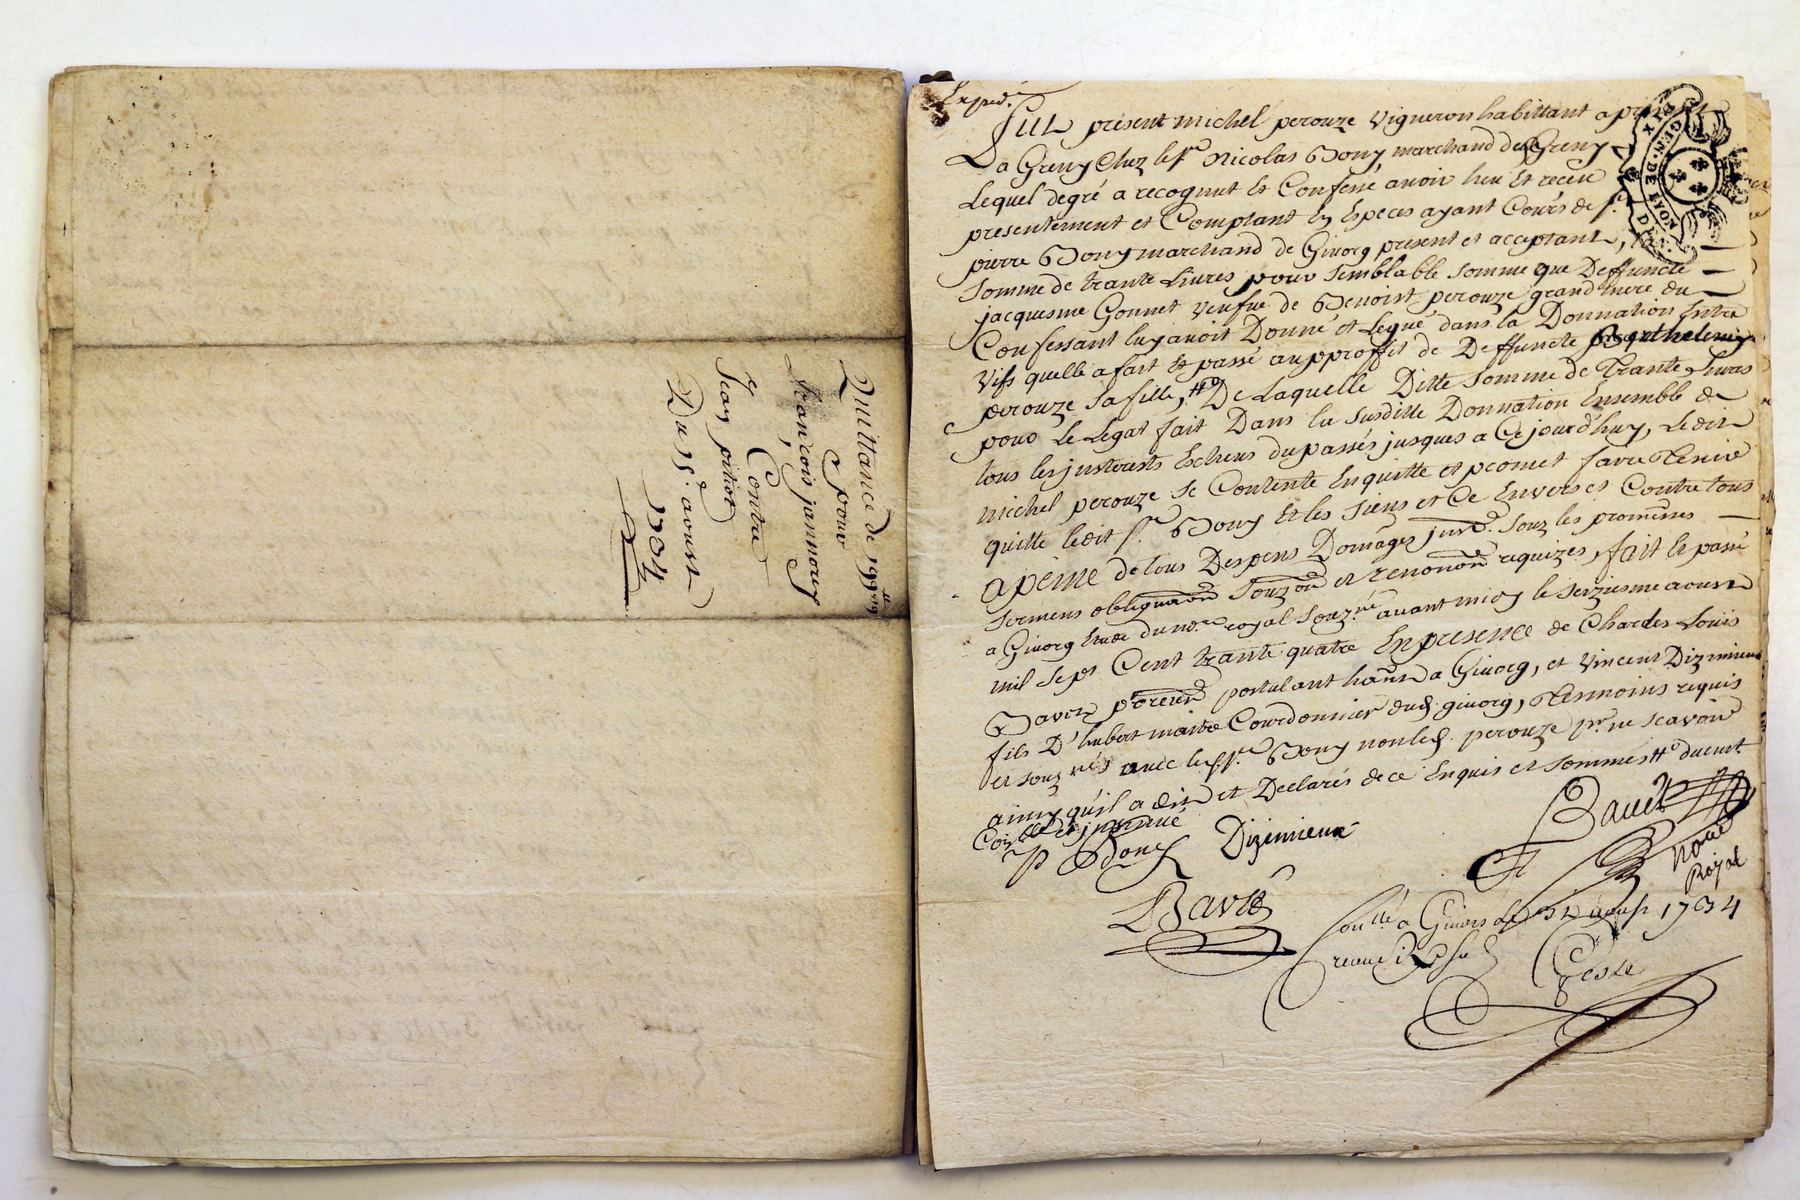 Quittance de 199
pour
francois jannorey
Contre
Jean pitiot
Du 15e aoust
1734
Exped.
fut présent michel perouze Vigneron habittant a
La Greny Chez le sr Nicolas Bony marchand de Greny
Lequel degré a recognut et Confessé avoir heu Et receu
presentement et Comptant En Especes ayant Cours de sr
pierre Bony marchand de Givorg present et acceptant, la
somme de trante Livres pour semblable somme que Deffuncte
jacquesme Gonnet Veufve de Benoist perouze grand mere du
Confessant luy avoit Donné et Legué dans la Donnation Entre
Vifs quelle a fait Et passé au proffit de Deffuncte Barthelemie
perouze sa fille, De Laquelle Ditte somme de trante Livres
pour Le Legat fait Dans la susditte Donnation Ensemble de
tous les jnterests Escheus du passés jusques a Ce jourd'huy, Ledit
michel perouze se Contente En quitte et promet faire tenir
quitte ledit sr Bony Et les siens et Ce Envers et Contre tous
a peine de tous Despens Domages jnts. souz les promesses
sermens obligaõn souzõn et renonõn requizes, fait Et passé
a Givorg Etude du nore royal souz.né avant midy le seiziesme aoust
mil sept Cent trante quatre En presence de Charles Loüis
Bavet procureur postulant habñt a Givorg, et Vincent Dizimieux
fils D'hubert maitre Courdonnier dud. givorg, tesmoins requis
et souz.nés avec led. sr Bony non led. perouze pr. ne scavoir
ainsy qu'il a dit et Declarés de ce Enquis et sommés
P Bony Dizimieux
Bavet
Bavet
Noue
Royal
Con.llé a Givors le aoust 1734
receu
Geste
GEN. DE LYON